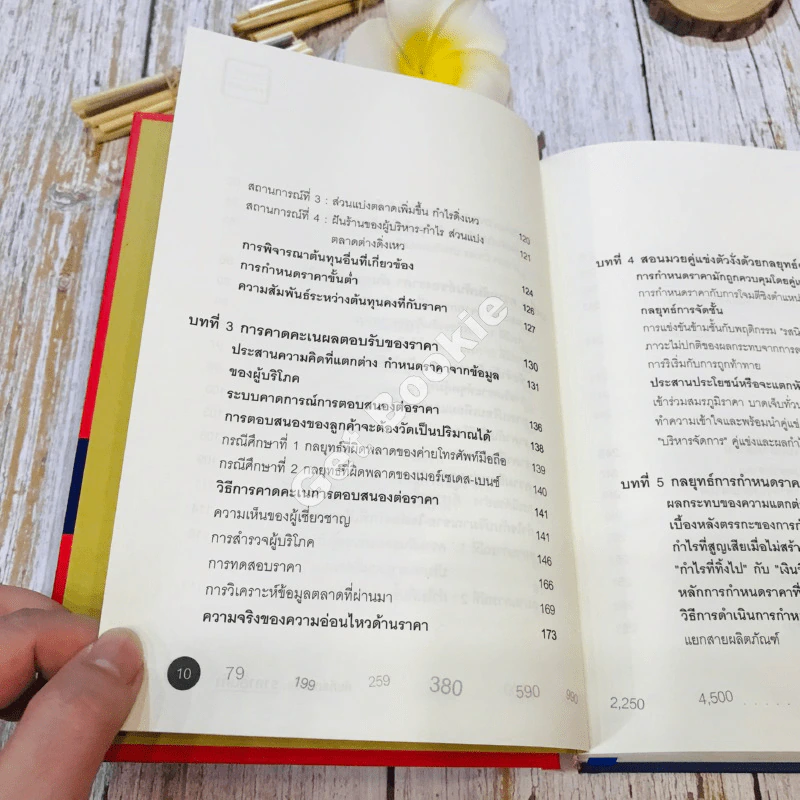 สถานการณ์ที่ 3 : ส่วนแบ่งตลาดเพิ่มขึ้น กำไรดิ่งเหว 120
สถานการณ์ที่ 4 : ฝันร้ายของผู้บริหาร-กำไร ส่วนแบ่ง 121
ตลาดต่างดิ่งเหว
การพิจารณาต้นทุนอื่นที่เกี่ยวข้อง 124
การกำหนดราคาขั้นต่ำ 126
ความสัมพันธ์ระหว่างต้นทุนคงที่กับราคา 127
บทที่ 3 การคาดคะเนผลตอบรับของราคา 130
ประสานความคิดที่แตกต่าง กำหนดราคาจากข้อมูล 131
ของผู้บริโภค
ระบบคาดการณ์การตอบสนองต่อราคา 136
การตอบสนองของลูกค้าจะต้องวัดเป็นปริมาณได้ 138
กรณีศึกษาที่ 1 กลยุทธ์ที่ผิดพลาดของค่ายโทรศัพท์มือถือ 139
กรณีศึกษาที่ 2 กลยุทธ์ที่ผิดพลาดของเมอร์เซเดส-เบนซ์ 140
วิธีการคาดคะเนการตอบสนองต่อราคา 141
ความเห็นของผู้เชี่ยวชาญ 141
การสำรวจผู้บริโภค 146
การทดสอบราคา 166
การวิเคราะห์ข้อมูลตลาดที่ผ่านมา 169
ความจริงของความอ่อนไหวด้านราคา 173
10 79 199 259 380 590 990
บทที่ 4 สอนมวยคู่แข่งตัวงั่งด้วยกลยุทธ์
การกำหนดราคามักถูกควบคุมโดยคู่แ
การกำหนดราคากับการโจมตีชิงตำแหน่
กลยุทธ์การจัดชั้น
การแข่งขันข้ามชั้นกับพฤติกรรม "รสนิ
ภาวะไม่ปกติของผลกระทบจากการล
การริเริ่มกับการถูกท้าทาย
ประสานประโยชน์หรือจะแตกหั
เข้าร่วมสมรภูมิราคา บาดเจ็บทั่ว
ทำความเข้าใจและพร้อมนำคู่แข่
"บริหารจัดการ" คู่แข่งและผลกำไ
บทที่ 5 กลยุทธ์การกำหนดราค
ผลกระทบของความแตกต่
เบื้องหลังตรรกะของการกำ
กำไรที่สูญเสียเมื่อไม่สร้า
"กำไรที่ทิ้งไป" กับ "เงิน
หลักการกำหนดราคาที่
วิธีการดำเนินการกำห
แยกสายผลิตภัณฑ์
2,250 4,500 . . . . .
Get Bookie